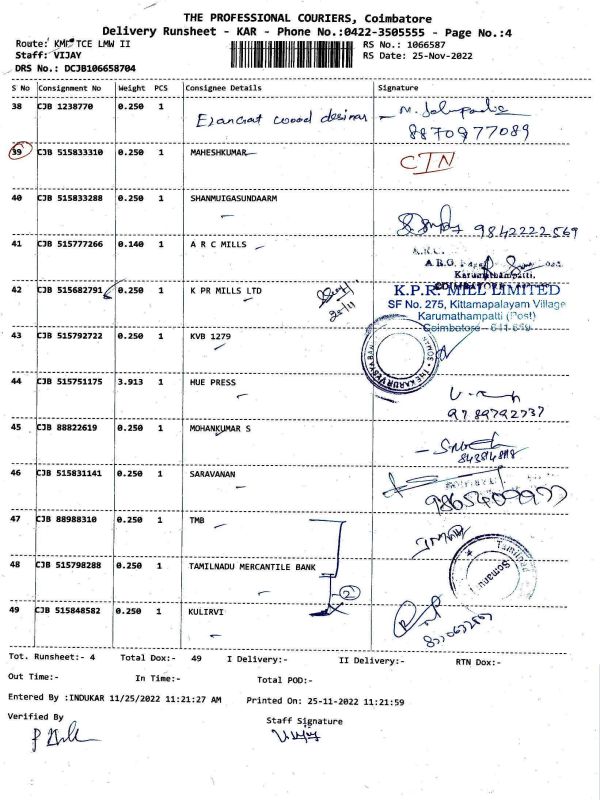 THE PROFESSIONAL COURIERS, Coimbatore
Delivery Runsheet - KAR - Phone No.:0422-3505555 - Page No.:4
Route: KMP TCE LMW II
RS No.: 1066587
Staff: VIJAY
RS Date: 25-Nov-2022
DRS No.: DCJB106658704
S No Consignment No Weight PCS Consignee Details Signature
38 CJB 1238770 0.250 1
8870977089
39 CJB 515833310 0.250 1 MAHESHKUMAR CTN
40 CJB 515833288 0.250 1 SHANMUIGASUNDAARM
9842222569
41 CJB 515777266 0.140 1 A R C MILLS
Karumathampatti,
42 CJB 515682791 0.250 1 K PR MILLS LTD
25/11
K.P.R. MILL LIMITED
SF No. 275, Kittamapalayam Village
Karumathampatti (Post)
Coimbatore - 641 659
43 CJB 515792722 0.250 1 KVB 1279
44 CJB 515751175 3.913 1 HUE PRESS
9789792737
45 CJB 88822619 0.250 1 MOHANKUMAR S
46 CJB 515831141 0.250 1 SARAVANAN
47 CJB 88988310 0.250 1 TMB
48 CJB 515798288 0.250 1 TAMILNADU MERCANTILE BANK
2
Tamilnad
Somanur
49 CJB 515848582 0.250 1 KULIRVI
Tot. Runsheet:- 4 Total Dox:- 49 I Delivery:- II Delivery:- RTN Dox:-
Out Time:- In Time:- Total POD:-
Entered By :INDUKAR 11/25/2022 11:21:27 AM Printed On: 25-11-2022 11:21:59
Verified By Staff Signature